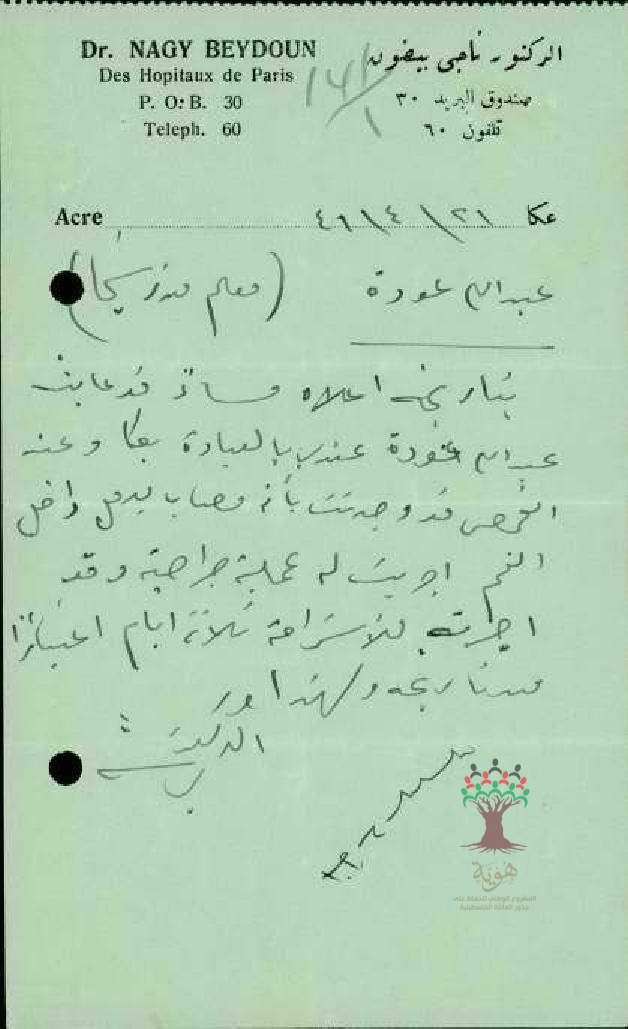 Dr. NAGY BEYDOUN
Des Hopitaux de Paris
P. O. B. 30
Teleph. 60
الدكتور ناجي بيضون
صندوق البريد ٣٠
تلفون ٦٠
Acre ٢١/٤/٤٦ عكا
عبدالله عودة (معلم مدرسة
بتاريخه اعلاه مساءً قد عاينت
عبدالله عودة عندي بالعيادة بعكا وعند
الفحص قد وجدت بأنه مصاب بدمل داخل
الفم اجريت له عملية جراحية وقد
اجزته للاستراحة ثلاثة ايام اعتبارًا
من تاريخه ولهذا
الدكتور
هُويّة
المشروع الوطني للحفاظ على
جذور العائلة الفلسطينية